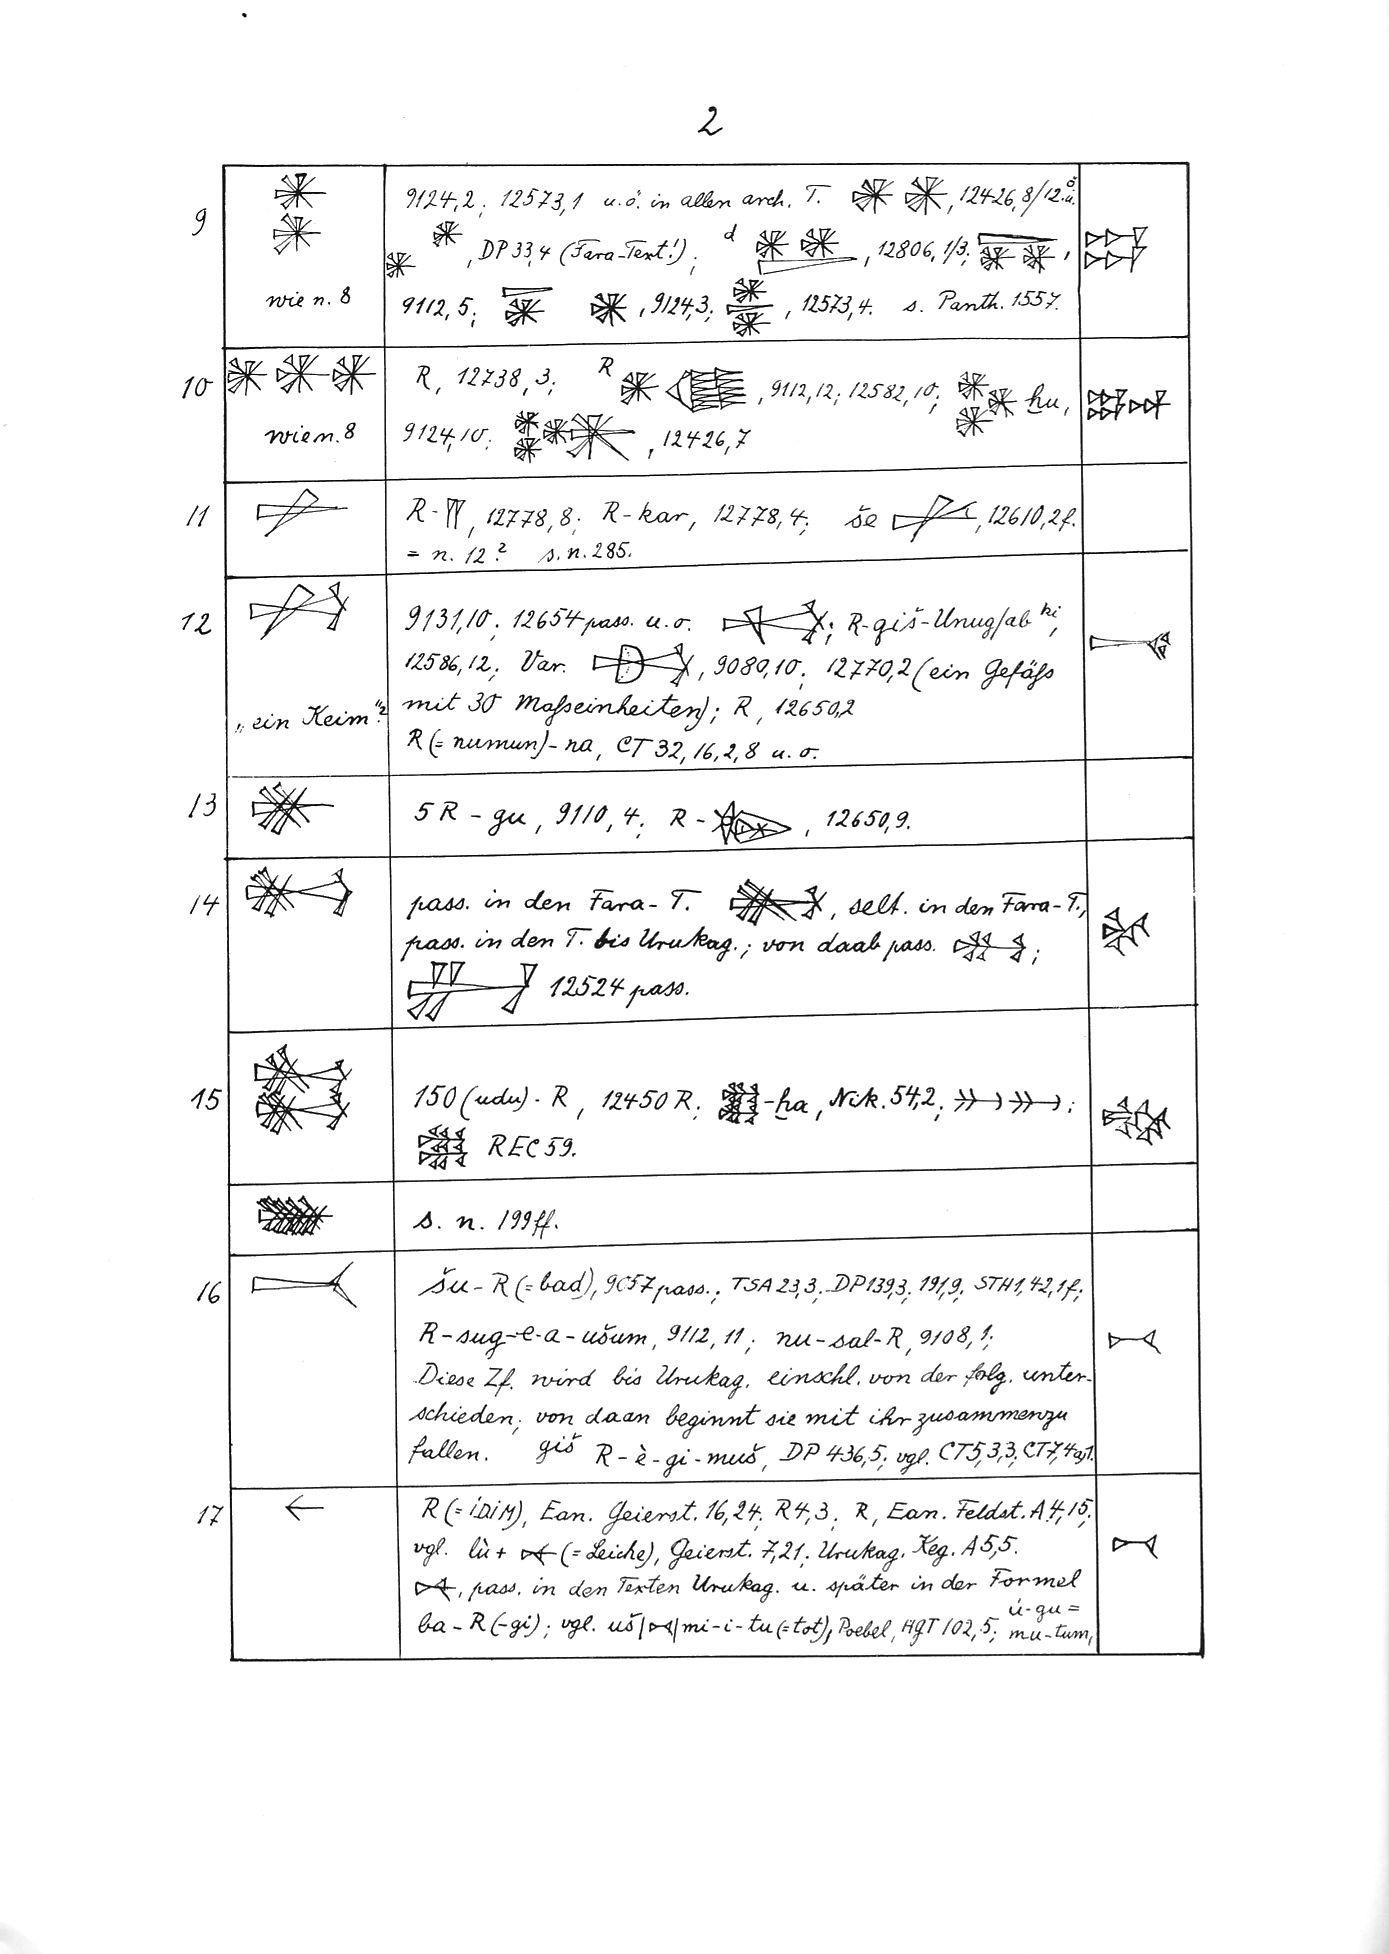 2
9
9124,2; 12573,1 u.ö. in allen arch. T. , 12426,8/12.ö.ü.
, DP 33,4 (Fara-Text!); d , 12806,1/3; ,
wie n. 8
9112,5; , 9124,3; , 12573,4. s. Panth. 1557.
10
R, 12738,3; R , 9112,12; 12582,10; ḫu,
wie n. 8
9124,10; , 12426,7
11
R- , 12778,8; R-kar, 12778,4; še , 12610,2f.
= n. 12? s. n. 285.
12
9131,10; 12654 pass. u. o. ; R-giš-Unug/ab ki,
12586,12; Var. , 9080,10; 12770,2 (ein Gefäß
„ein Keim"?
mit 30 Maßeinheiten); R, 12650,2
R (= numun)-na, CT 32,16,2,8 u. o.
13
5 R - gu, 9110,4; R- , 12650,9.
14
pass. in den Fara-T. , selt. in den Fara-T.,
pass. in den T. bis Urukag.; von daab pass. ;
12524 pass.
15
150 (udu)- R, 12450 R; -ḫa, Nik. 54,2; ;
REC 59.
s. n. 199ff.
16
šu-R (= bad), 9057 pass.; TSA 23,3; DP 139,3; 191,9; STH 1,42,1f;
R-sug-e-a-ušum, 9112,11; nu-sal-R, 9108,1;
Diese Zf. wird bis Urukag. einschl. von der folg. unter-
schieden; von daan beginnt sie mit ihr zusammenzu
fallen. giš R-è-gi-muš, DP 436,5; vgl. CT 5,3,3; CT 7,4
17
R (= IDIM), Ean. Geierst. 16,24; R 4,3; R, Ean. Feldst. A 4,15;
vgl. lù + (= Leiche), Geierst. 7,21; Urukag. Keg. A 5,5.
, pass. in den Texten Urukag. u. später in der Formel
ba-R (-gi); vgl. uš | | mi-i-tu (= tot), Poebel, HGT 102,5; ú-gu =
mu-tum,